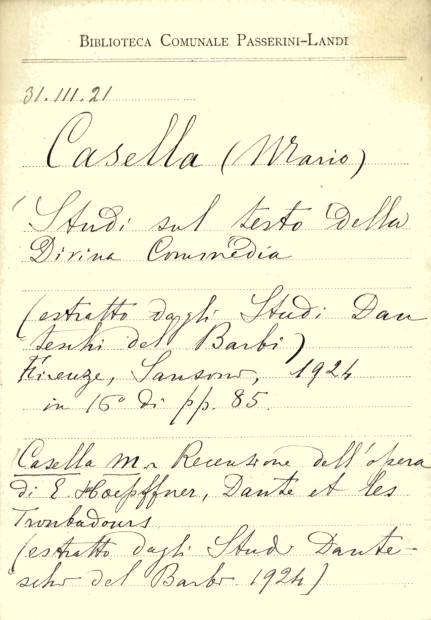 BIBLIOTECA COMUNALE PASSERINI-LANDI
31.III.21
Casella (Mario)
Studi sul testo della
Divina Commedia
(estratto dagli Studi Dan
teschi del Barbi)
Firenze, Sansoni, 1924
in 16° di pp. 85.
Casella M. Recensione dell'opera
di E. Hoepffner, Dante et les
Troubadours
(estratto dagli Studi Dante-
schi del Barbi 1924)